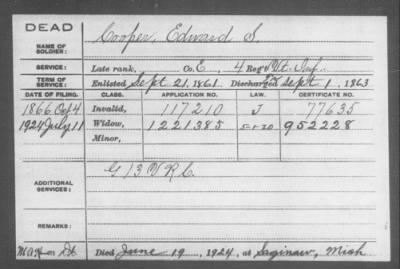 DEAD
NAME OF SOLDIER: Cooper, Edward S.
SERVICE: Late rank, Co. E, 4 Reg't Vt. Inf.
TERM OF SERVICE: Enlisted Sept. 21, 1861 Discharged Sept 1, 1863
DATE OF FILING. CLASS. APPLICATION NO. LAW. CERTIFICATE NO.
1866 Oct 4 Invalid, 117210 J 77635
1924 July 11 Widow, 1221385 5-1-20 952228
Minor,
ADDITIONAL SERVICES: G 13 V R C
REMARKS:
Died June 19, 1924, at Saginaw, Mich